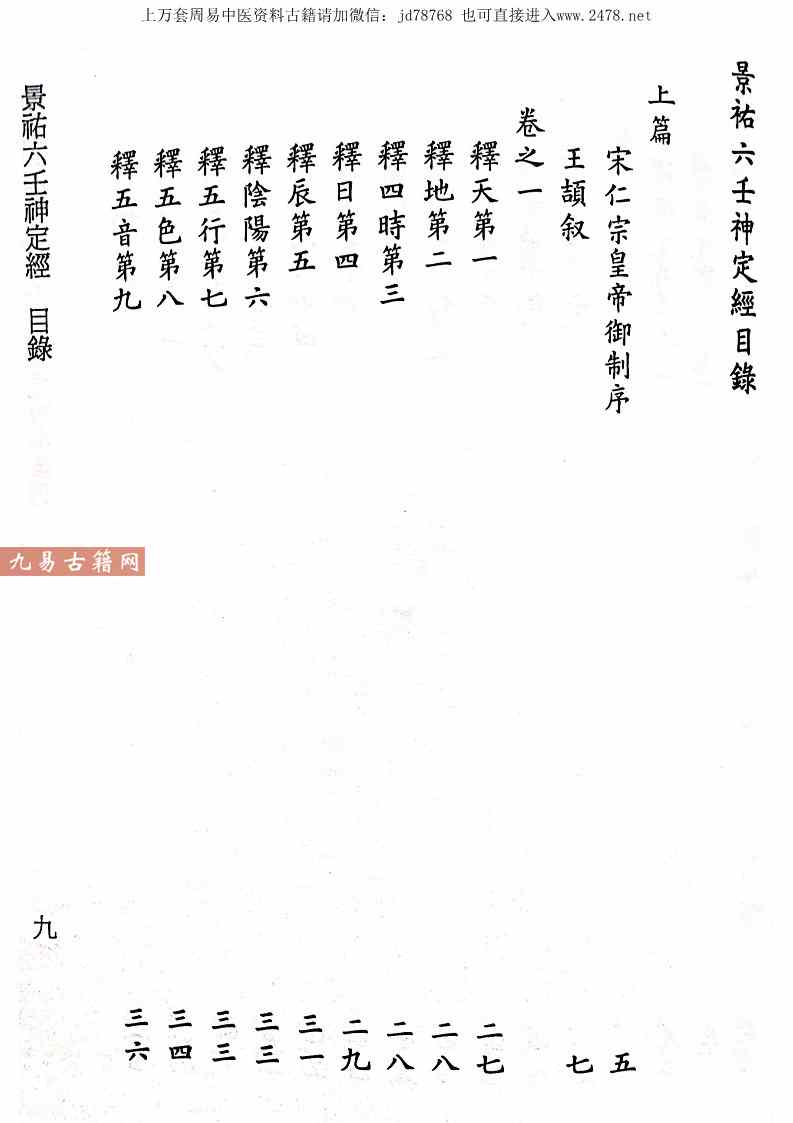 上万套周易中医资料古籍请加微信：jd78768 也可直接进入www.2478.net
景祐六壬神定經目錄
上篇
宋仁宗皇帝御制序 五
王頡叙 七
卷之一
釋天第一 二七
釋地第二 二八
釋四時第三 二八
釋日第四 二九
釋辰第五 三一
釋陰陽第六 三三
釋五行第七 三三
釋五色第八 三四
釋五音第九 三六
景祐六壬神定經 目錄
九
九易古籍网